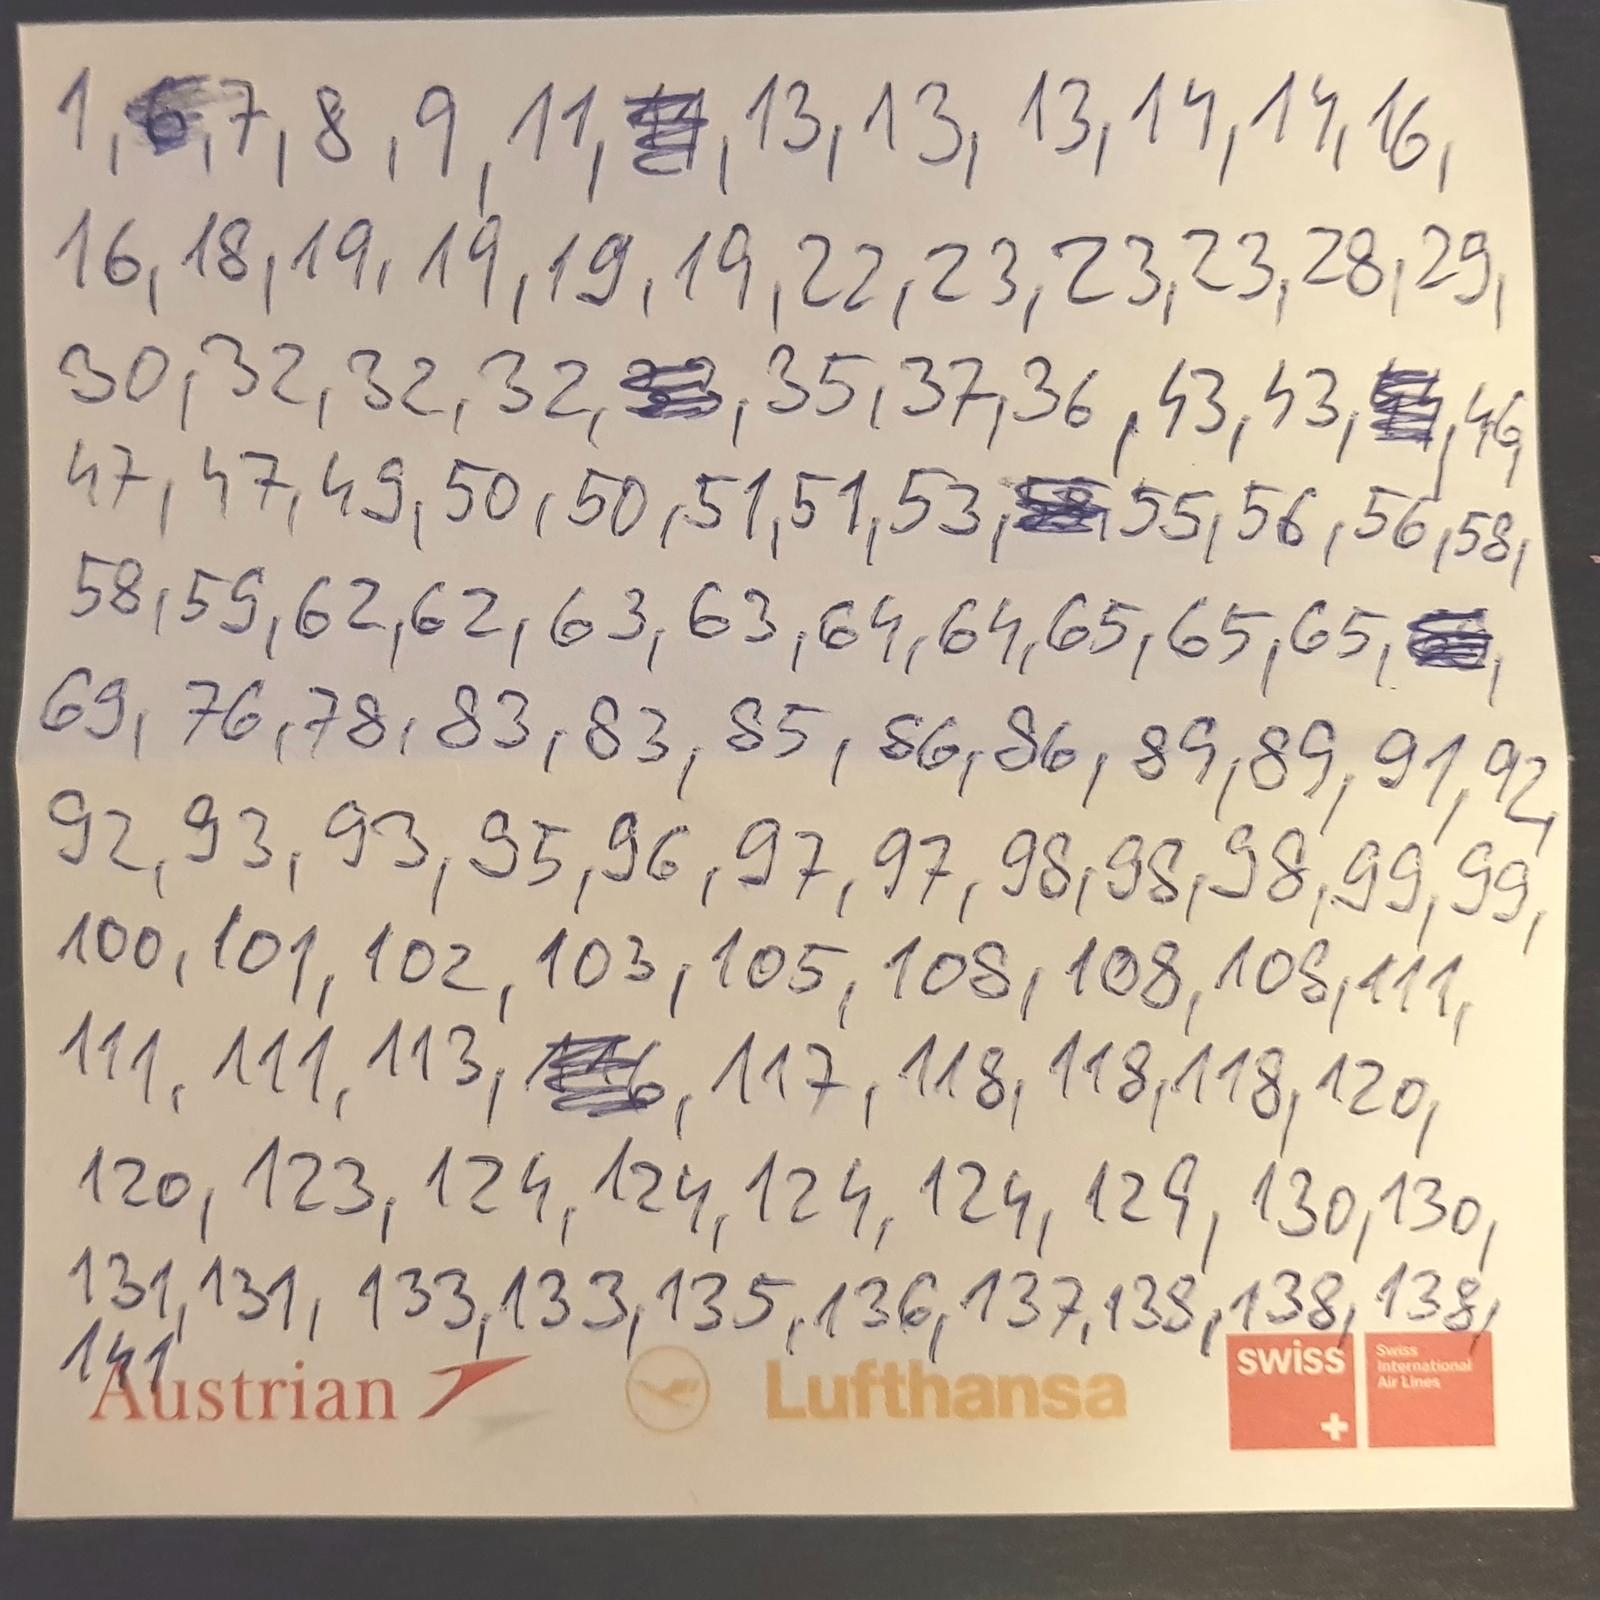 1, 7, 8, 9, 11, , 13, 13, 13, 14, 14, 16,
16, 18, 19, 19, 19, 19, 22, 23, 23, 23, 28, 29,
30, 32, 32, 32, , 35, 37, 36, 43, 43, , 46,
47, 47, 49, 50, 50, 51, 51, 53, , 55, 56, 56, 58,
58, 59, 62, 62, 63, 63, 64, 64, 65, 65, 65, ,
69, 76, 78, 83, 83, 85, 86, 86, 89, 89, 91, 92,
92, 93, 93, 95, 96, 97, 97, 98, 98, 98, 99, 99,
100, 101, 102, 103, 105, 108, 108, 108, 111,
111, 111, 113, , 117, 118, 118, 118, 120,
120, 123, 124, 124, 124, 124, 129, 130, 130,
131, 131, 133, 133, 135, 136, 137, 138, 138, 138,
141
Austrian Lufthansa SWISS Swiss
International
Air Lines